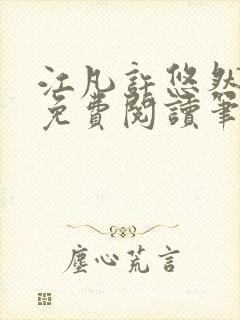 江凡許悠然
免費閱讀筆
塵心荒言